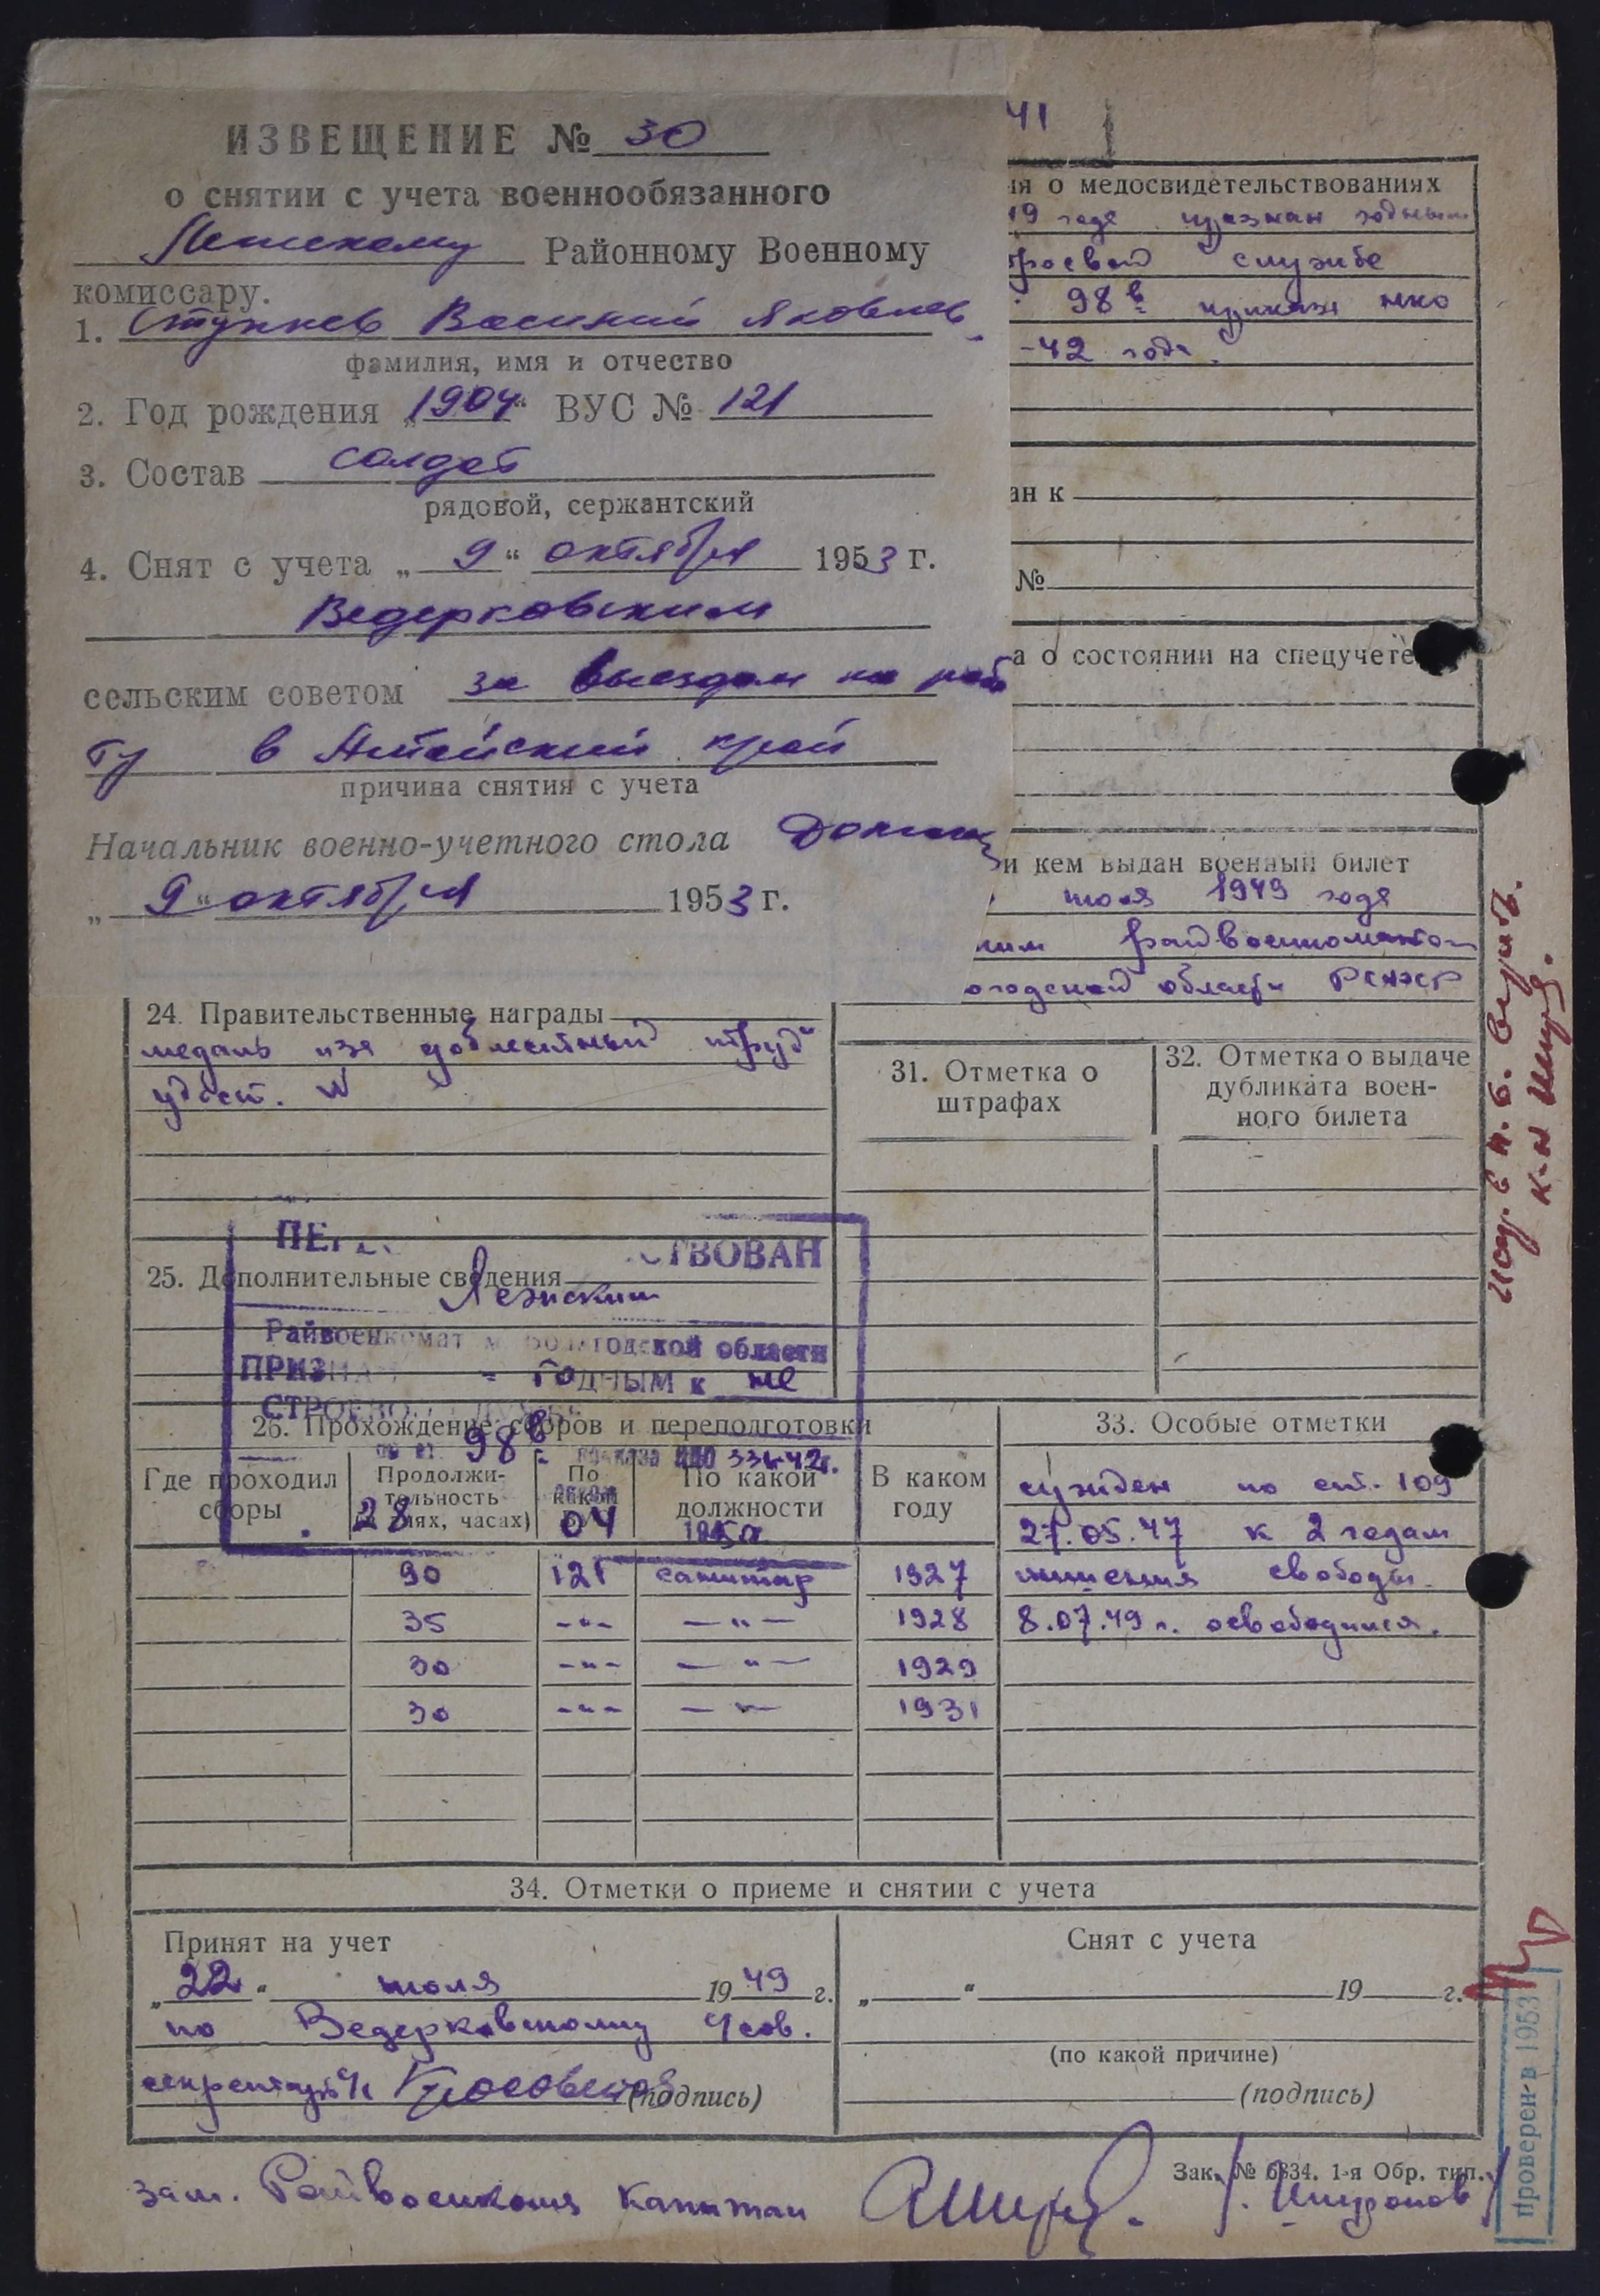 ИЗВЕЩЕНИЕ № 30
о снятии с учета военнообязанного
Районному Военному
комиссару.
1. Ступнев Василий Яковлев.
фамилия, имя и отчество
2. Год рождения „1904“ ВУС № 121
3. Состав солдат
рядовой, сержантский
4. Снят с учета „9“ октября 1953 г.
Ведерковским
сельским советом за выездом на рабо
ту в Алтайский край
причина снятия с учета
Начальник военно-учетного стола
„9“ октября 1953 г.
41
ия о медосвидетельствованиях
19 года признан годным
троевой службе
98 в приказа нко
-42 года.
ан к
№
а о состоянии на спецучете
и кем выдан военный билет
июля 1949 года
ким райвоенкоматом
огодской области РСФСР
24. Правительственные награды
медаль „за доблестный труд“
удост. №
31. Отметка о
штрафах
32. Отметка о выдаче
дубликата воен-
ного билета
ПЕ СТВОВАН
25. Дополнительные сведения
Лежским
Райвоенкомат Вологодской области
ПРИЗНАН годным к не
СТРОЕВОЙ СЛУЖБЕ
98 в приказа НКО 336-42г.
28 04 1950
26. Прохождение сборов и переподготовки
Где проходил сборы
Продолжи-
тельность
(в днях, часах)
По
какой
ВУС
По какой
должности
В каком
году
90 121 санитар 1927
35 -"- -"- 1928
30 -"- -"- 1929
30 -"- -"- 1931
33. Особые отметки
сужден по ст. 109
27.05.47 к 2 годам
лишения свободы.
8.07.49 г. освободился.
34. Отметки о приеме и снятии с учета
Принят на учет
„22“ июля 1949 г.
по Ведерковскому с/сов.
секретарь с/с (подпись)
Снят с учета
„ “ 19 г.
(по какой причине)
(подпись)
Зак. № 6834. 1-я Обр. тип.
зам. Райвоенкома капитан /Шпуронов/
проверен в 1953